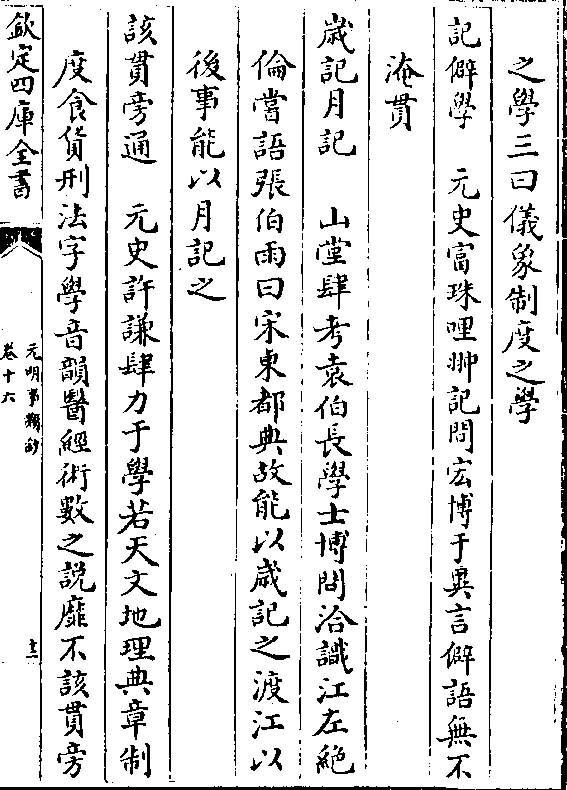 之學三曰儀象制度之學
記僻學　元史富珠哩翀記問宏博于異言僻語無不
淹貫
歳記月記　山堂肆考袁伯長學士博聞洽識江左絶
倫嘗語張伯雨曰宋東都典故能以歳記之渡江以
後事能以月記之
該貫旁通　元史許謙肆力于學若天文地理典章制
度食貨刑法字學音韻醫經術數之説靡不該貫旁
欽定四庫全書
元明事類鈔
卷十六
十三